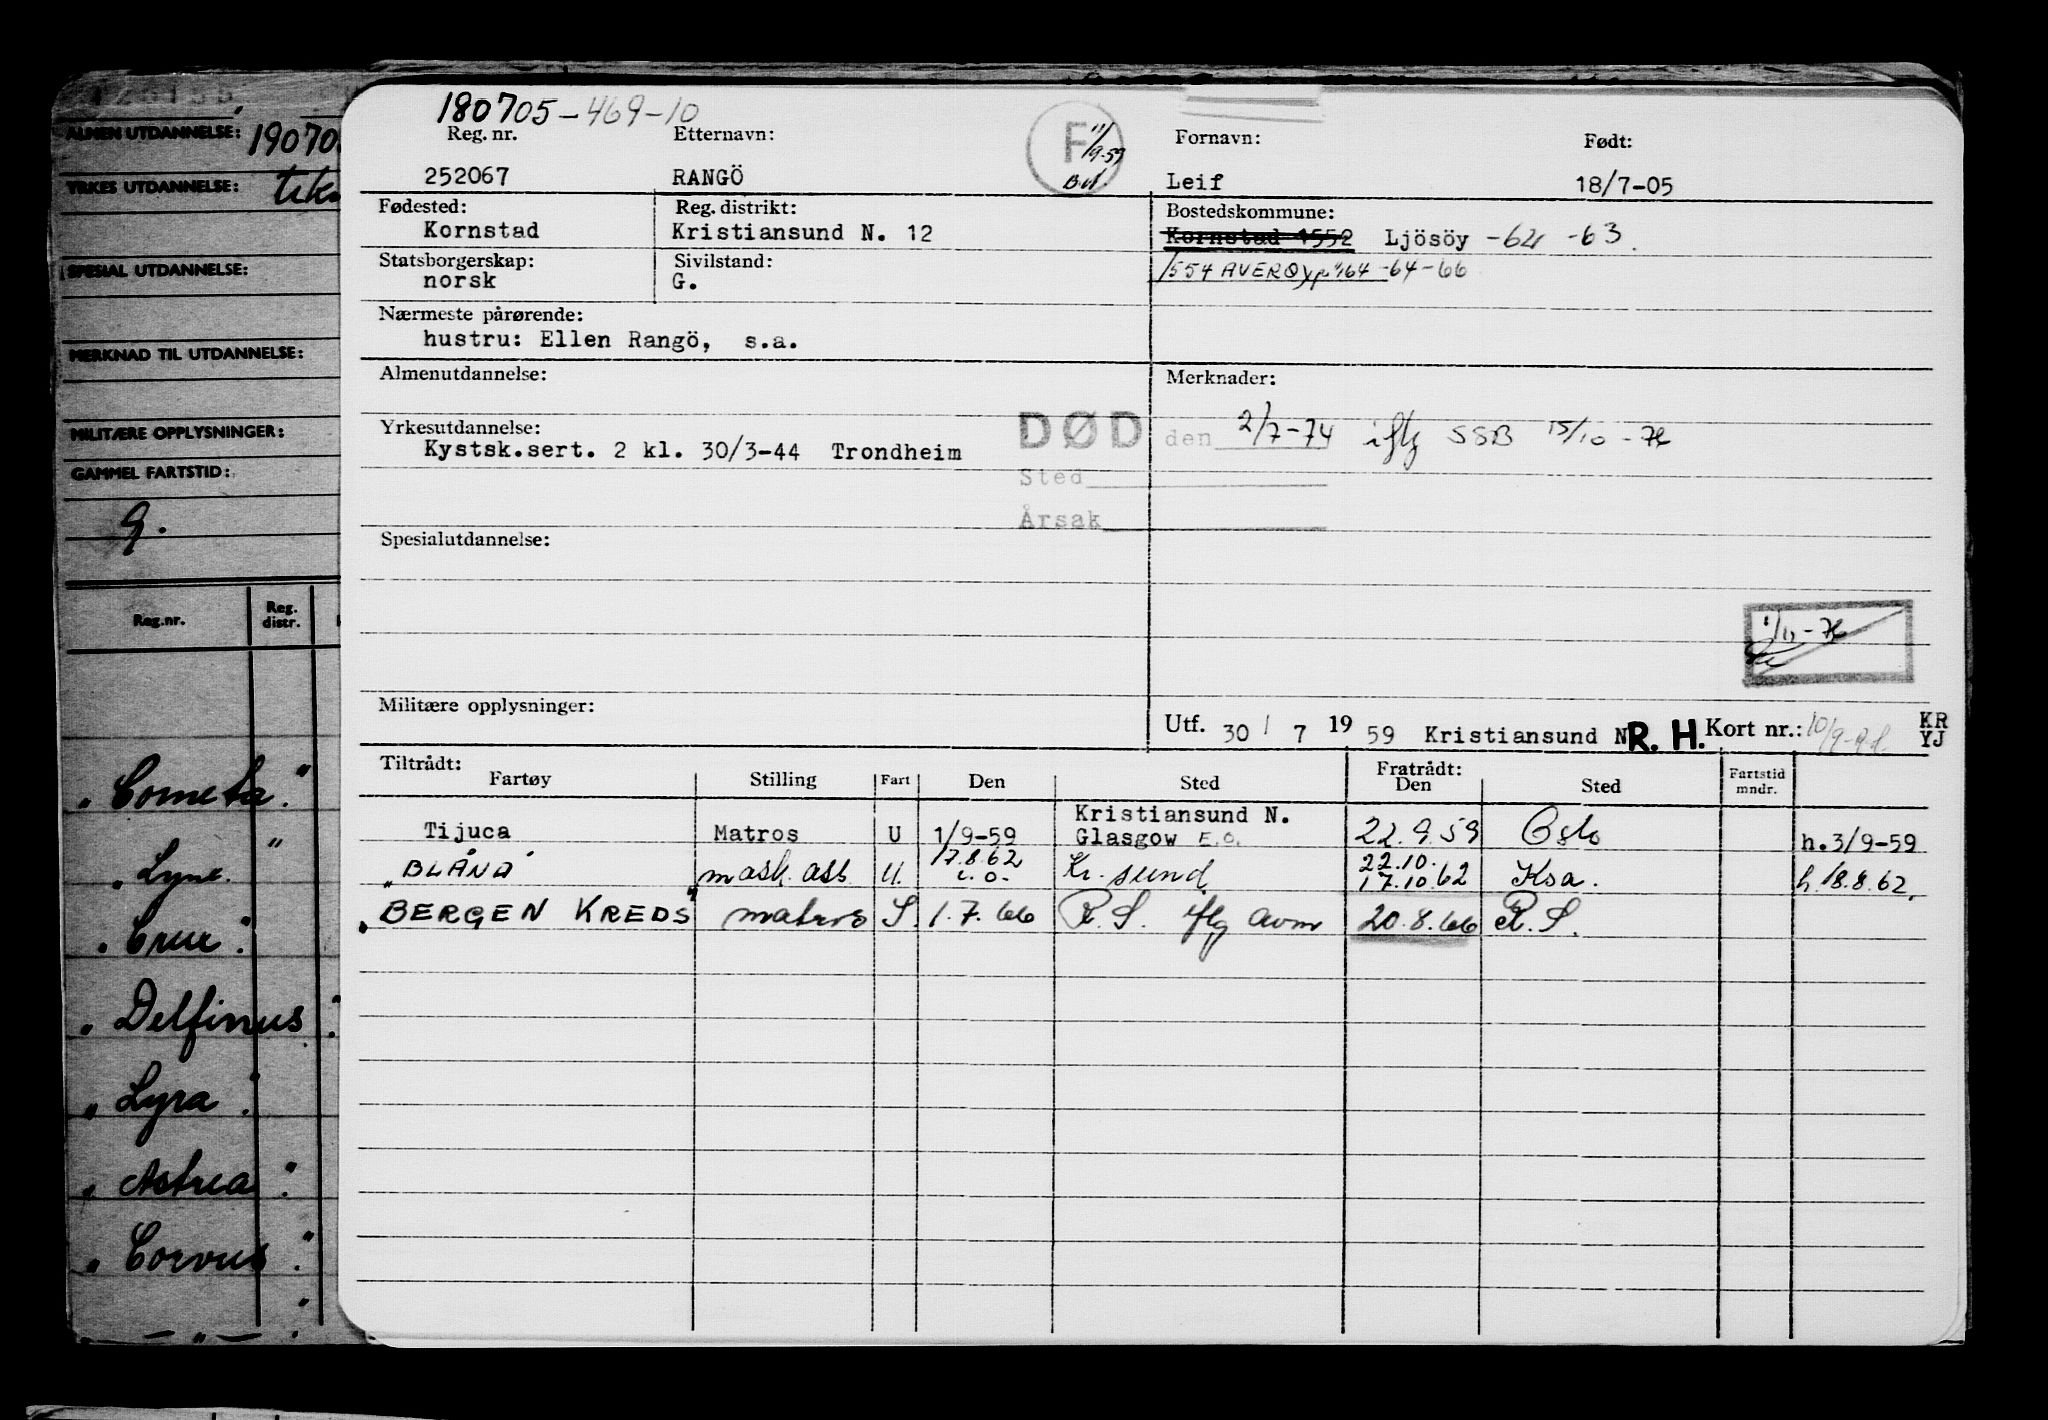 180705-469-10
Reg. nr. Etternavn: Fornavn: Født:
F 11/9-59
252067 RANGÖ Leif 18/7-05
Fødested: Reg. distrikt: Bostedskommune:
Kornstad Kristiansund N. 12 Kornstad 1552 Ljösöy -62 -63
Statsborgerskap: Sivilstand: 1554 AVERØY -64-66
norsk G.
Nærmeste pårørende:
hustru: Ellen Rangö, s.a.
Almenutdannelse: Merknader:
Yrkesutdannelse: DØD den 2/7-74 iflg SSB 15/10-76
Kystsk.sert. 2 kl. 30/3-44 Trondheim
Sted
Årsak
Spesialutdannelse:
1/11-76
Militære opplysninger: Utf. 30/7 1959 Kristiansund N R. H. Kort nr.: KR
YJ
Tiltrådt: Fratrådt:
Fartøy Stilling Fart Den Sted Den Sted Fartstid
mndr.
Kristiansund N.
Tijuca Matros U 1/9-59 Glasgow E.O. 22.9.59 Oslo h.3/9-59
17.8.62 22.10.
"BLÅND" mask. ass U. u.o. Kr. sund 17.10.62 Ksa. h. 18.8.62.
"BERGEN KREDS" matros S. 1.7.66 R.S. iflg avm 20.8.66 R.S.
ALMEN UTDANNELSE: 19070
YRKES UTDANNELSE:
SPESIAL UTDANNELSE:
MERKNAD TIL UTDANNELSE:
MILITÆRE OPPLYSNINGER:
GAMMEL FARTSTID:
G.
Reg.nr. Reg.
distr.
"Cometa."
"Lynx."
"Crux."
"Delfinus."
"Lyra."
"Astrea."
"Corvus."
- " - "